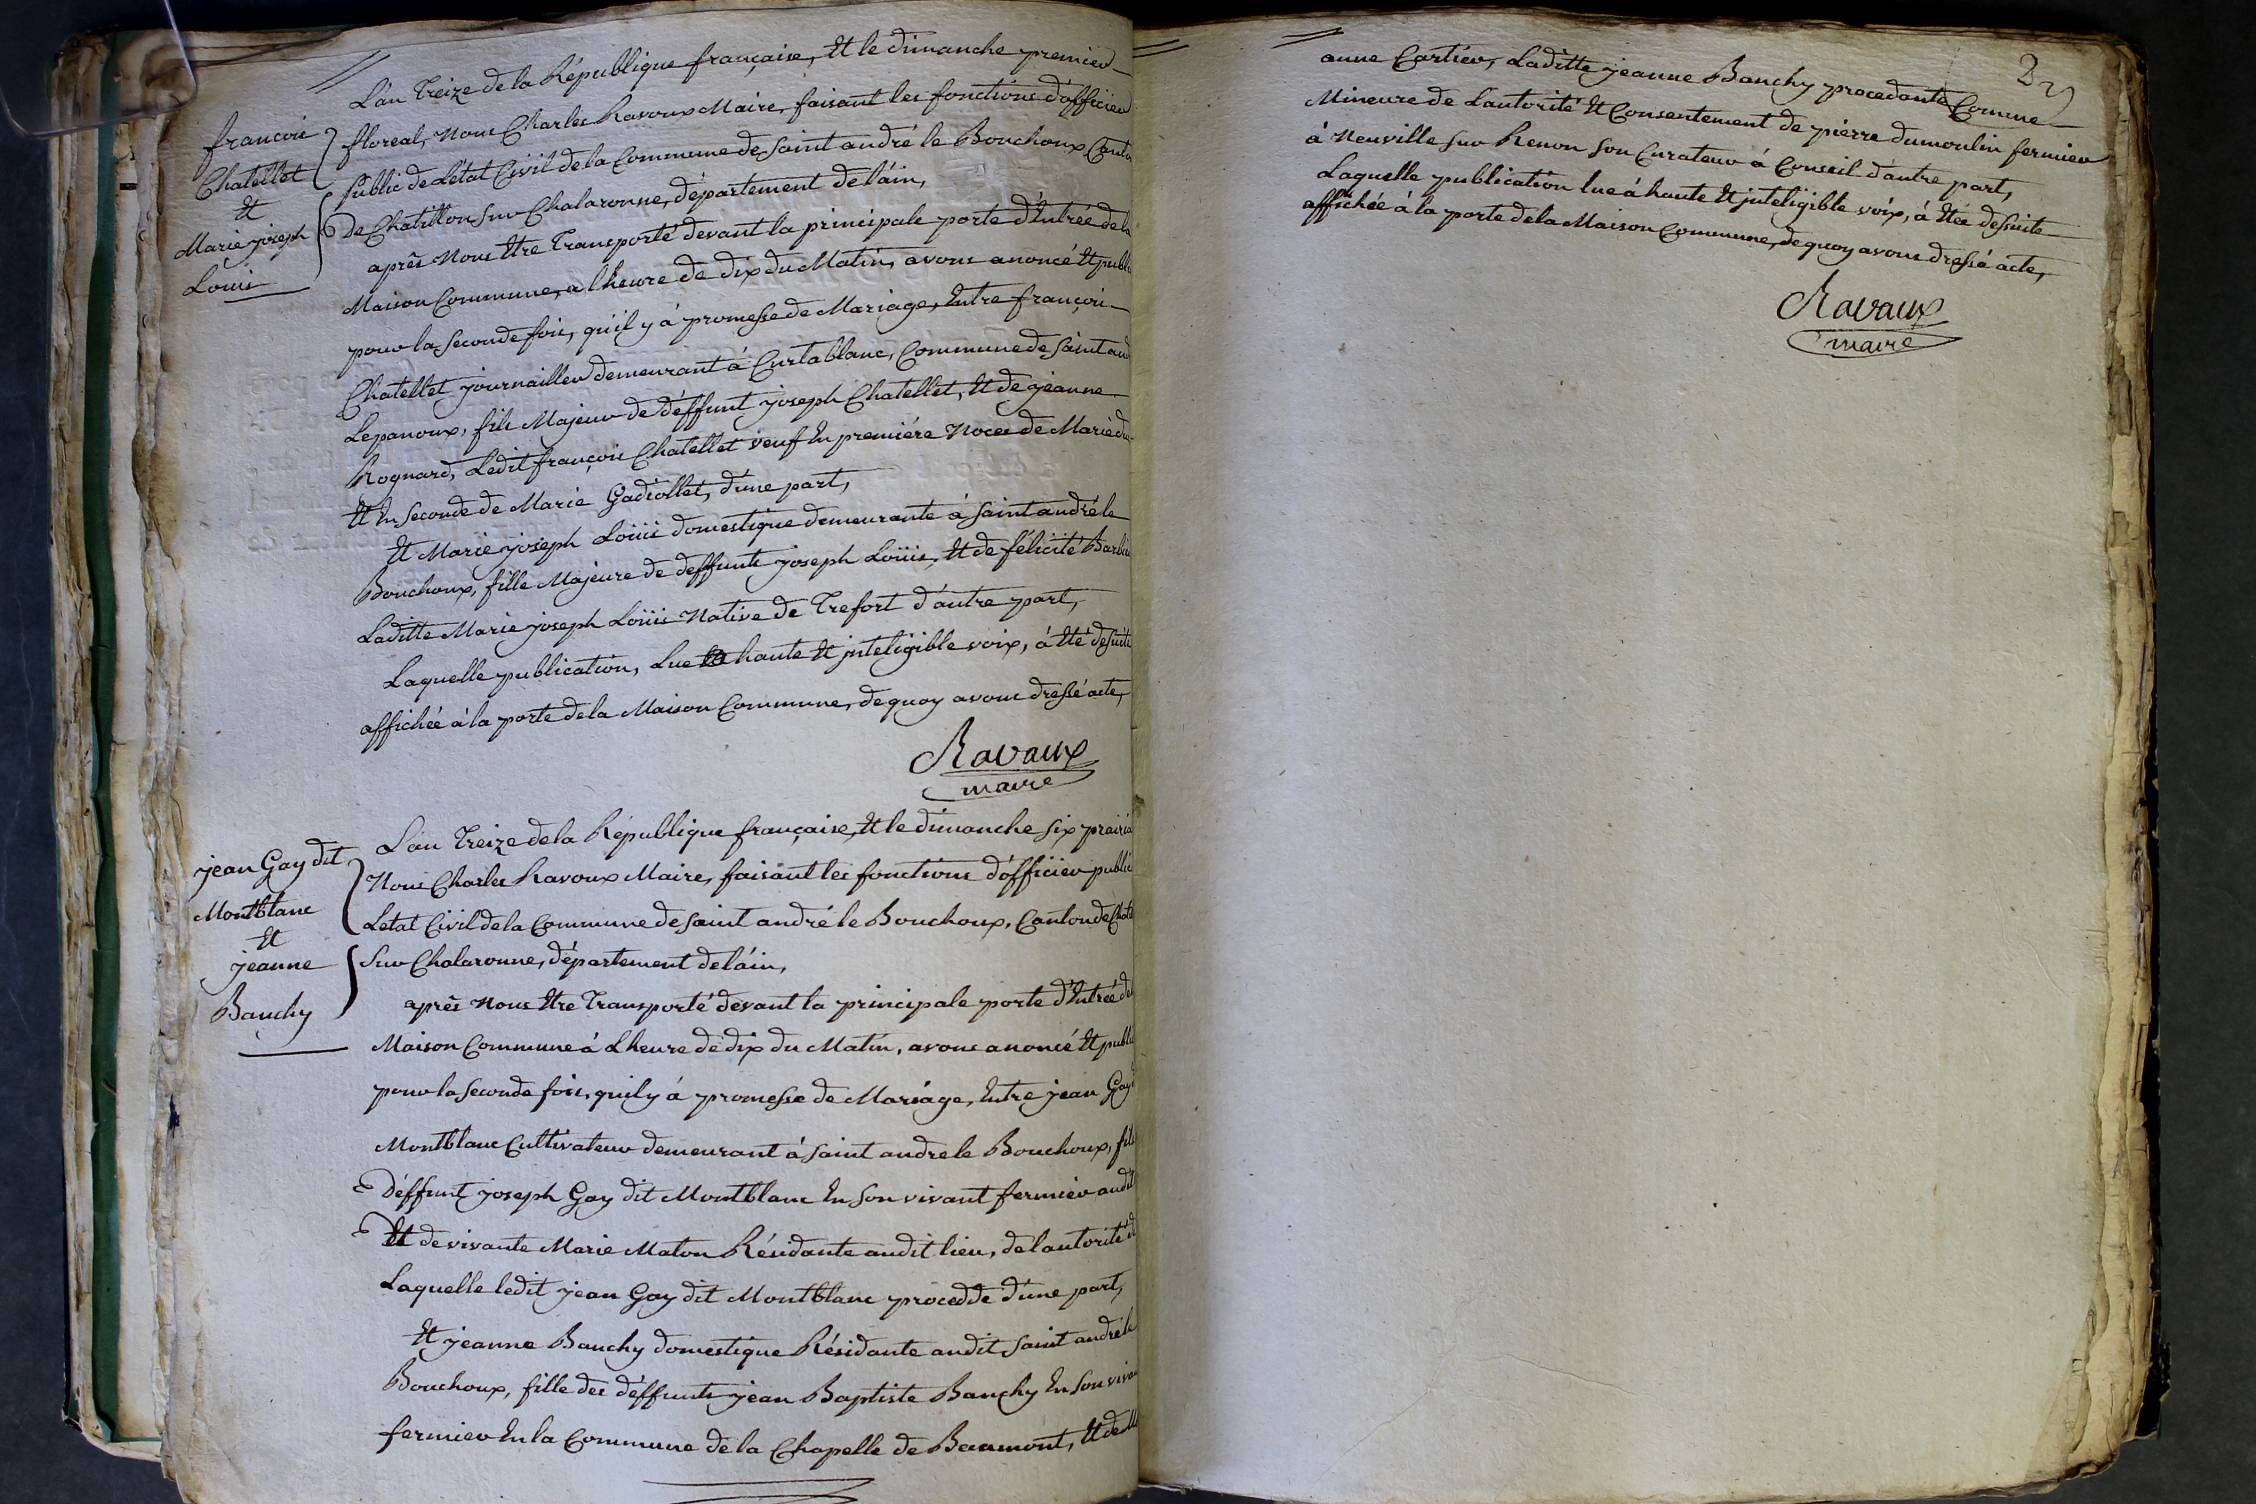 L'an Treize de la République française, Et le dimanche premier
françois
floreal, Nous Charles Ravoux Maire, faisant les fonctions d'officier
Chatellet
Public de L'état Civil de la Commune de Saint andré le Bouchoux Canton
Et
De Chatillon Sur Chalaronne, département de láin,
Marie joseph
Louis
après Nous Etre Transporté devant la principale porte d'Entrée de la
Maison Commune, a lheure de dix du Matin, avons anoncé Et publi
pour la Seconde fois, qu'il y á promesse de Mariage, Entre françois
Chatellet journaillier demeurant á Curtablanc, Commune de Saint and
Lepanoux, fils Majeur de déffunt joseph Chatellet, Et de jeanne
Rognard, Ledit françois Chatellet veuf En premiére Noces de Marie
Et En Seconde de Marie Gadiollet, d'une part,
Et Marie joseph Loüis domestique demeurante á Saint andré le
Bouchoux, fille Majeure de deffunts joseph Loüis, Et de félicité
Laditte Marie joseph Loüis Native de Trefort d'autre part,
Laquelle publication, Lue haute Et jnteligible voix, á Eté de Suite
affichée à la porte de la Maison Commune, de quoy avons dressé acte,
Ravaux
maire
L'an Treize de la République française, Et le dimanche Six prairia
jean Gay dit
Nous Charles Ravoux Maire, faisant les fonctions d'officier public
Montblanc
Létat Civil de la Commune de Saint andré le Bouchoux, Canton de Chat
Et
jeanne
Sur Chalaronne, département de láin,
Banchy
après Nous Etre Transporté devant la principale porte d'Entrée de
Maison Commune á Lheure de dix du Matin, avons anoncé Et publi
pour la Seconde fois, quil y á promesse de Mariage, Entre jean Gay
Montblanc Cultivateur demeurant á Saint andre le Bouchoux, fils
Déffunt joseph Gay dit Montblanc En Son vivant fermier audit
Et de vivante Marie Maton Résidante audit lieu, de lautorité de
Laquelle ledit jean Gay dit Montblanc procedde d'une part,
Et jeanne Banchy domestique Résidante audit Saint andré le
Bouchoux, fille des déffunts jean Baptiste Banchy En Son viva
fermier En la Commune de la Chapelle de Beaumont, Et de
anne Cartier, Laditte jeanne Banchy procedante Comme
Mineure de Lautorité Et Consentement de pierre dumoulin fermier
á Neuville Sur Renon Son Curateur á Conseil d'autre part,
Laquelle publication lue á haute Et jnteligible voix, á Etée de Suite
affichée à la porte de la Maison Commune, de quoy avons dressé acte,
Ravaux
maire